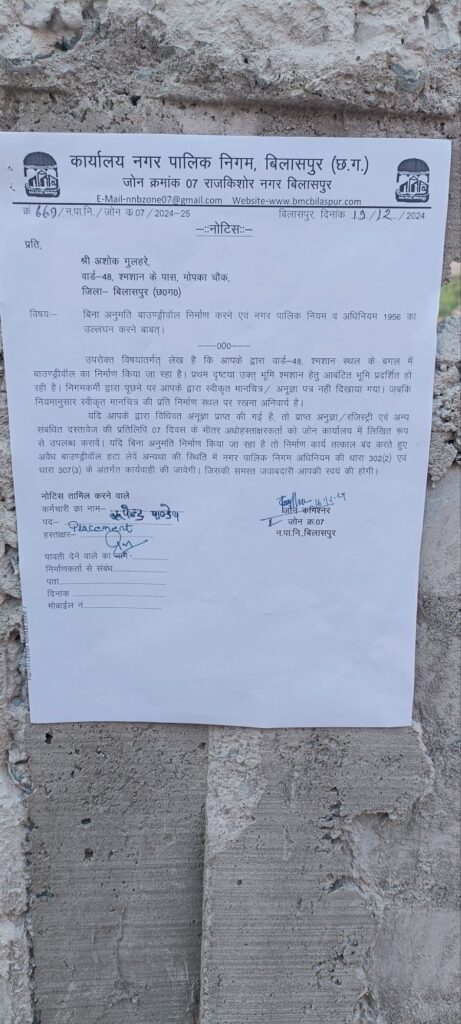 कार्यालय नगर पालिक निगम, बिलासपुर (छ.ग.)
जोन क्रमांक 07 राजकिशोर नगर बिलासपुर
E-Mail-nnbzone07@gmail.com Website-www.bmcbilaspur.com
क्र 669/न.पा.नि./जोन क.07/2024-25 बिलासपुर, दिनांक 19/12/2024
—::नोटिसः:—
प्रति,
श्री अशोक गुलहरे,
वार्ड-48, श्मशान के पास, मोपका चौक,
जिला– बिलासपुर (छ0ग0)
विषयः– बिना अनुमति बाउण्ड्रीवॉल निर्माण करने एवं नगर पालिक नियम व अधिनियम 1956 का
उल्लंघन करने बाबत्।
----00o----
उपरोक्त विषयांतर्गत् लेख है कि आपके द्वारा वार्ड-48, श्मशान स्थल के बगल में
बाउण्ड्रीवॉल का निर्माण किया जा रहा है। प्रथम दृष्टया उक्त भूमि श्मशान हेतु आबंटित भूमि प्रदर्शित हो
रही है। निगमकर्मी द्वारा पूछने पर आपके द्वारा स्वीकृत मानचित्र/ अनूज्ञा पत्र नही दिखाया गया। जबकि
नियमानुसार स्वीकृत मानचित्र की प्रति निर्माण स्थल पर रखना अनिवार्य है।
यदि आपके द्वारा विधिवत अनूज्ञा प्राप्त की गई है, तो प्राप्त अनूज्ञा/रजिस्ट्री एवं अन्य
संबंधित दस्तावेज की प्रतिलिपि 07 दिवस के भीतर अधोहस्ताक्षरकर्ता को जोन कार्यालय में लिखित रूप
से उपलब्ध करावें। यदि बिना अनुमति निर्माण किया जा रहा है तो निर्माण कार्य तत्काल बंद करते हुए
अवैध बाउण्ड्रीवॉल हटा लेवें अन्यथा की स्थिति में नगर पालिक निगम अधिनियम की धारा 302(2) एवं
धारा 307(3) के अंतर्गत कार्यवाही की जावेगी। जिसकी समस्त जवाबदारी आपकी स्वयं की होगी।
नोटिस तामिल करने वाले
कर्मचारी का नाम– पाण्डेय
पद– Placement
हस्ताक्षर–
जोन कमिश्नर
जोन क.07
न.पा.नि.,बिलासपुर
पावती देने वाले का नाम
निर्माणकर्ता से संबंध
पता
दिनांक
मोबाईल न